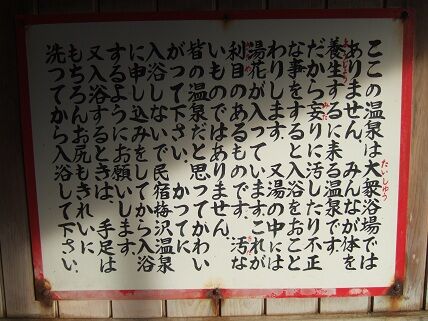 ここの温泉は大衆浴場では
ありません。みんなが体を
養生するに来る温泉です
だから妄りに汚したり不正
な事をすると入浴をおこと
わりします。又湯の中には
湯花が入っています。これが
利目のあるものです。汚な
いものではありません。
皆の温泉だと思つてかわい
がつて下さい。かつてに
入浴しないで民宿梅沢温泉
に申し込みをしてから入浴
するようにお願いします。
又入浴するときは、手足は
もちろんお尻もきれいに
洗つてから入浴して下さい。